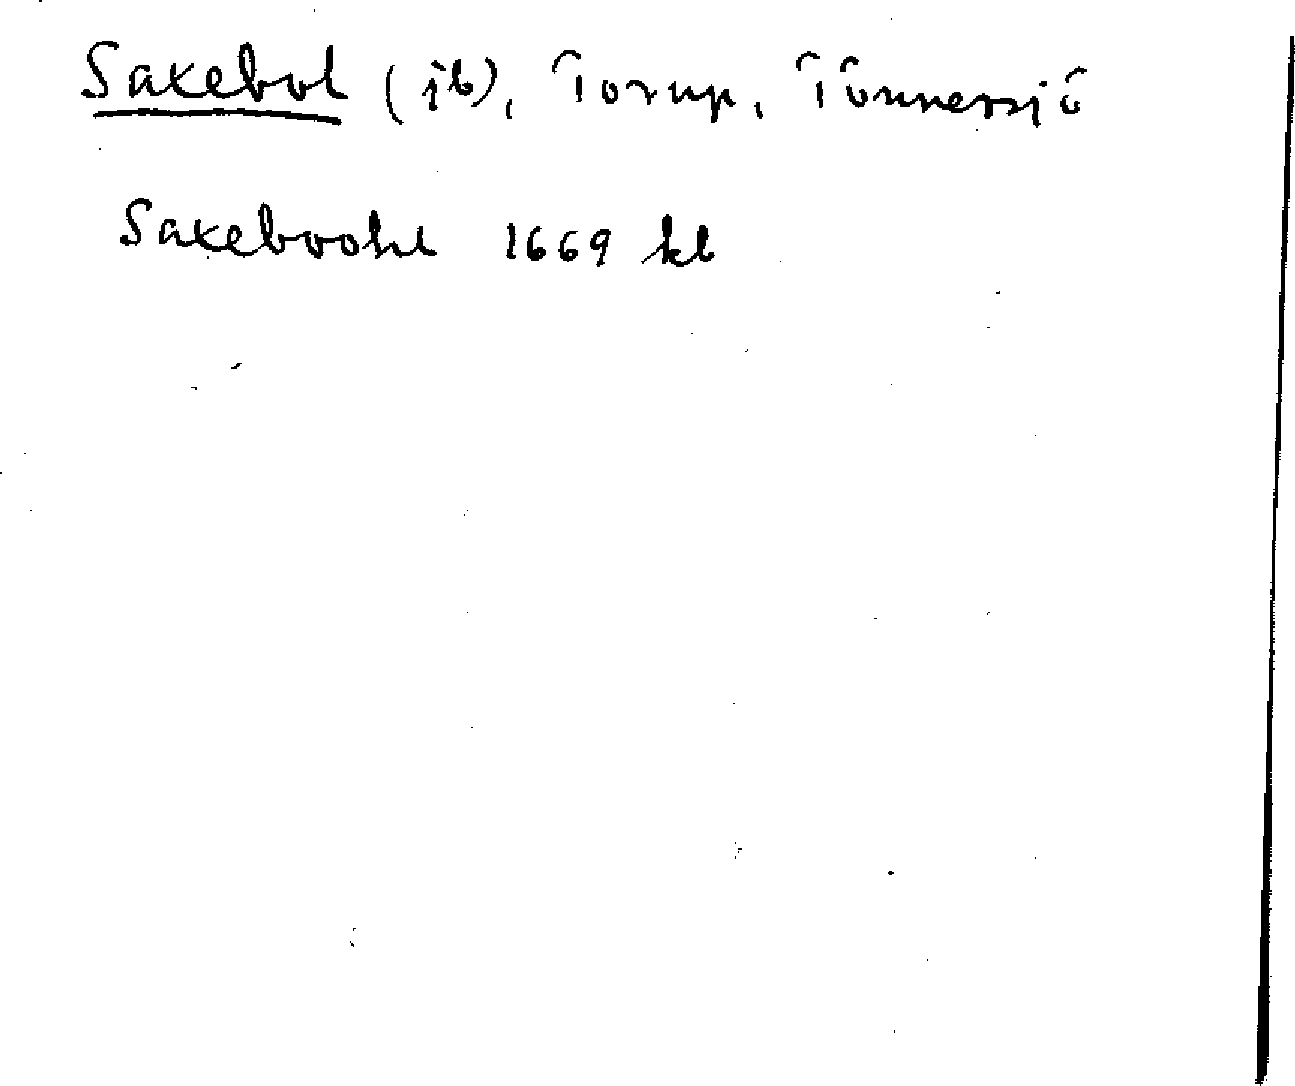 Saxebol (jb), Torup, Tönnersjö
Saxeboohl 1669 kb